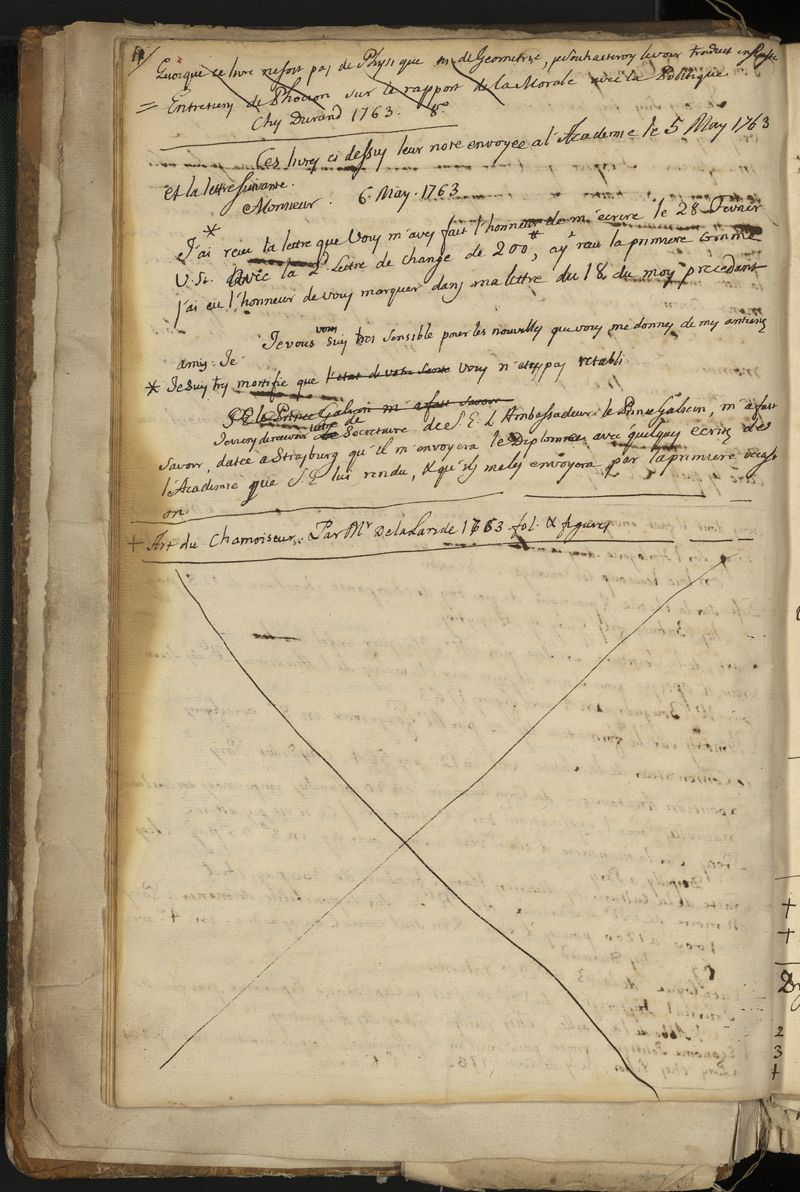 Quoique ce livre ne soit pas de Physique ni de Geometrie, je souhaiteroy le voir traduit en Russe
= Entretiens de Phocion sur le rapport de la Morale avec la Politique
Chez Durand 1763. 8.º
Ces livres ci dessus leur note envoyée a l'Academie le 5 May 1763
et la lettre suivante.
Monsieur. 6 May. 1763
* J'ai receu la lettre que Vous m'avez fait l'honneur de m'ecrire le 28 Fevrier
V. St. avec la 2.d Lettre de change de 200 ₶, ayt receu la premiere comme
j'ai eu l'honneur de vous marquer dans ma lettre du 18 du moy precedant
Je vous suis tres sensible pour les nouvelles que vous me donnez de mes anciens
vous
amis. Je
* Je suis tres mortifié que l'etat de votre santé vous n'etes pas retabli
S E le Prince Galitzin m'a fait savoir
Secretaire de S. E. L'Ambassadeur le Prince Galitzin, m'a fait
savoir, datée a Strasburg qu'il m'envoyera le Diplome avec quelques ecrits des
l'Academie que S. E lui rendu, & qu'il me les envoyera par la premiere occasi
on.
+ Art du Chamoiseur. Par Mr De la Lande 1763 fol. & figures
+
+
2
3
+